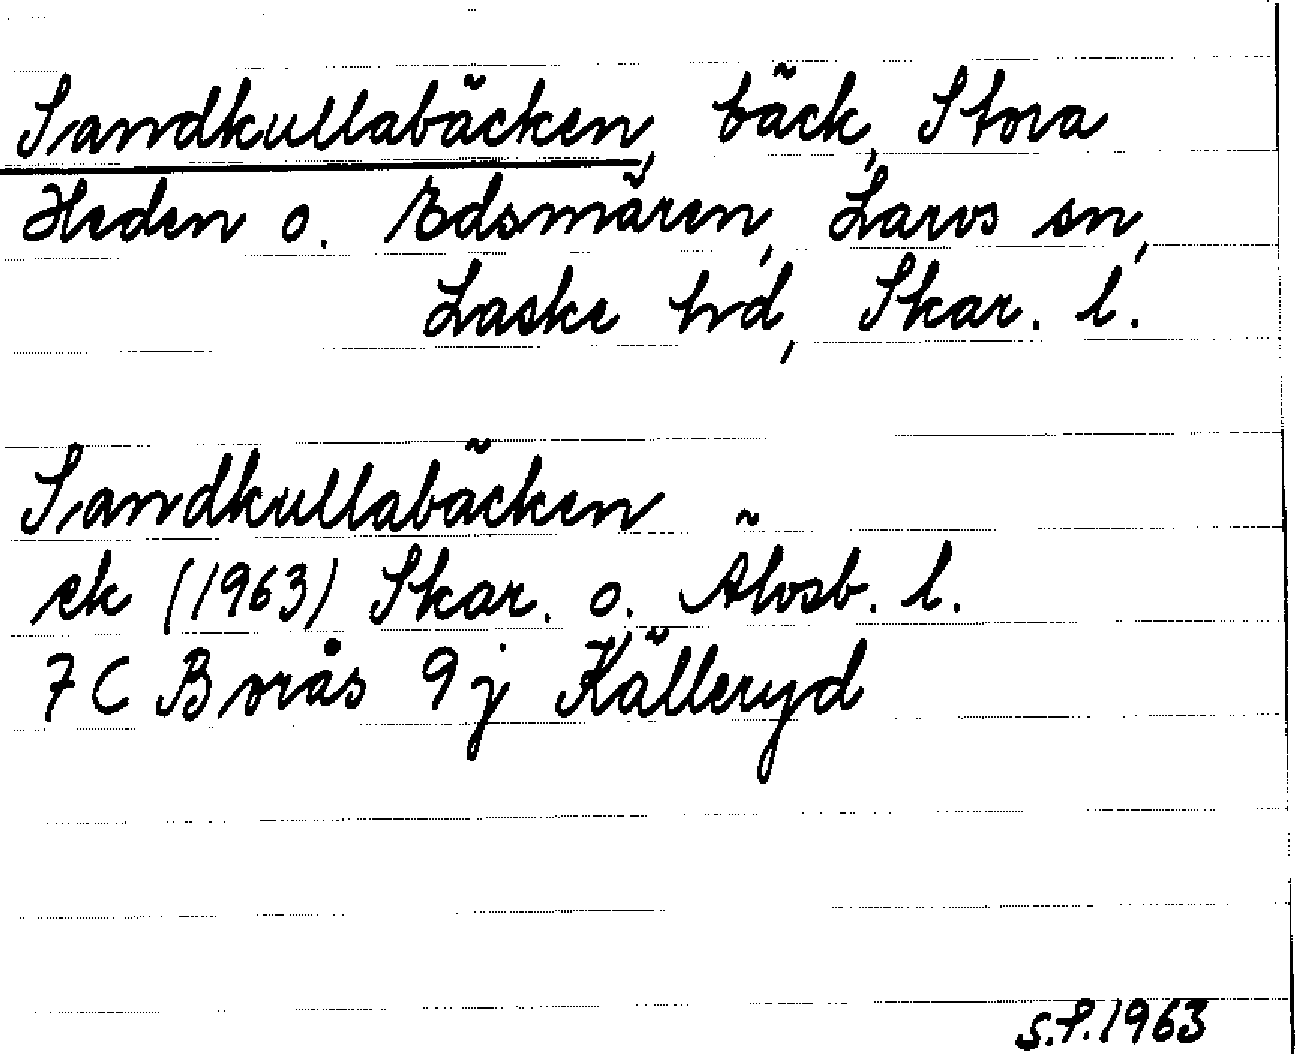 Sandkullabäcken, bäck, Stora
Heden o. Edsmären, Larvs sn,
Laske hrd, Skar. l.
Sandkullabäcken
ek (1963) Skar. o. Älvsb. l.
7C Borås 9j Källeryd
S.P. 1963